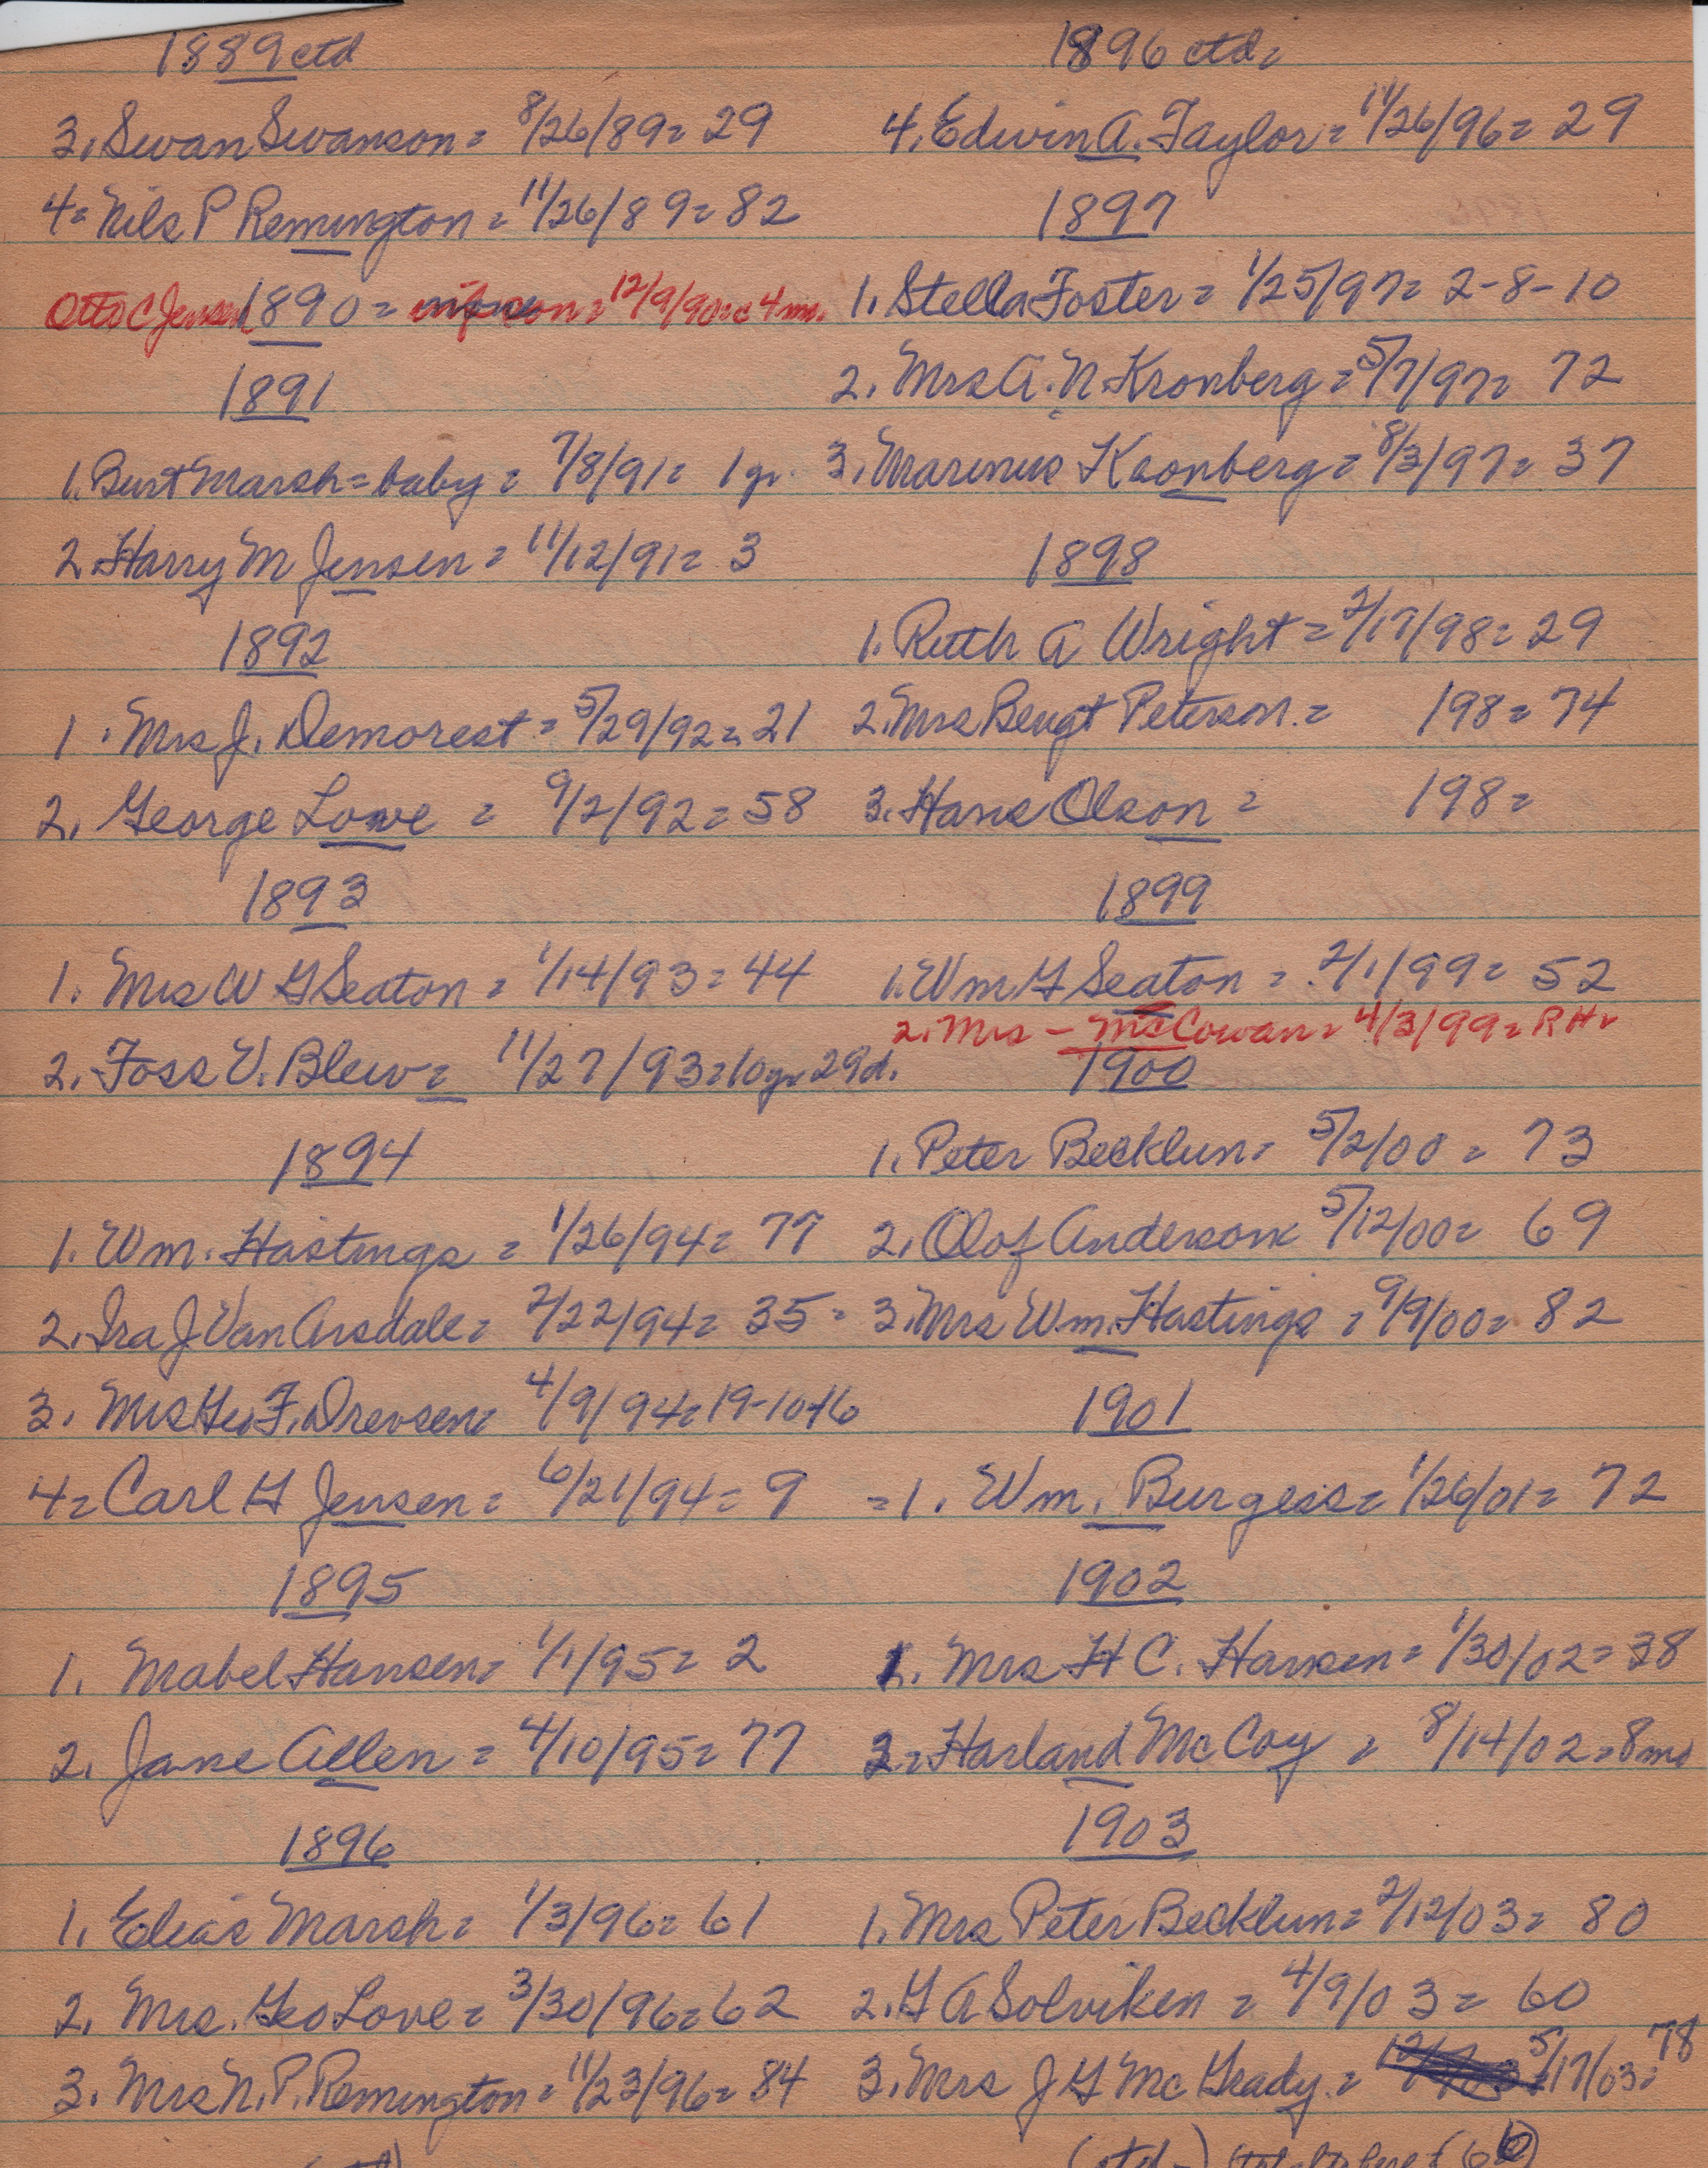 1889 ctd
3. Swan Swanson = 8/26/89 = 29
4 = Nils P Remington = 11/26/89 = 82
Otto C Jensen 1890 = 12/9/90 = c 4 mo.
1891
1. Burt Marsh = baby = 7/8/91 = 1 yr.
2. Harry M Jensen = 11/12/91 = 3
1892
1. Mrs J. Demorest = 5/29/92 = 21
2. George Lowe = 9/2/92 = 58
1893
1. Mrs W G Seaton = 1/14/93 = 44
2. Foss V. Blew = 11/27/93 = 10 yr 29d.
1894
1. Wm. Hastings = 1/26/94 = 77
2. Ira J Van Arsdale = 2/22/94 = 35 =
3. Mrs Geo F. Drevsen = 4/9/94 = 19-10-16
4 = Carl G Jensen = 6/21/94 = 9
1895
1. Mabel Hansen = 1/1/95 = 2
2. Jane Allen = 4/10/95 = 77
1896
1. Elias Marsh = 1/3/96 = 61
2. Mrs. Geo Love = 3/30/96 = 62
3. Mrs N. P. Remington = 11/23/96 = 84
(ctd)
1896 ctd =
4. Edwin A. Taylor = 11/26/96 = 29
1897
1. Stella Foster = 1/25/97 = 2-8-10
2. Mrs A. N Kronberg = 5/7/97 = 72
3. Marinus Kronberg = 8/3/97 = 37
1898
1. Ruth A Wright = 2/17/98 = 29
2. Mrs Bengt Peterson = 198 = 74
3. Hans Olson = 198 =
1899
1. Wm G Seaton = 2/1/99 = 52
2. Mrs - McCowan = 4/3/99 = R H =
1900
1. Peter Becklun = 5/2/00 = 73
2. Olof Anderson = 5/12/00 = 69
3. Mrs Wm. Hastings = 9/9/00 = 82
1901
= 1. Wm. Burgess = 1/26/01 = 72
1902
1. Mrs H C. Hansen = 1/30/02 = 38
2. = Harland McCoy = 8/14/02 = 8 mo
1903
1. Mrs Peter Becklun = 2/12/03 = 80
2. G A Solviken = 4/9/03 = 60
3. Mrs J G McGrady = 5/17/03 = 78
(ctd -) total to here (66)